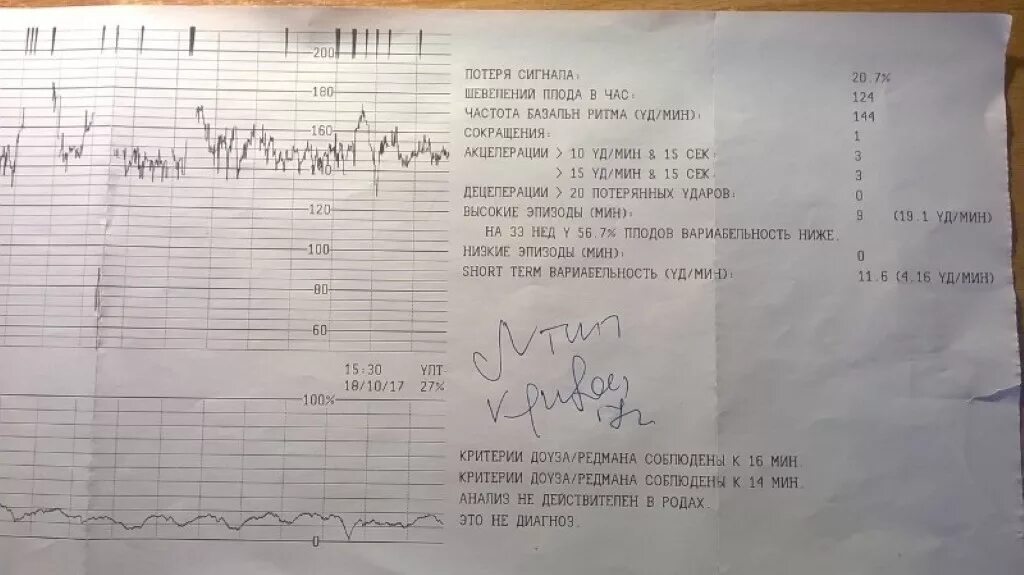 200
180
160
140
120
100
80
60
15:30 УЛТ
18/10/17 27%
100%
0
ПОТЕРЯ СИГНАЛА: 20.7%
ШЕВЕЛЕНИЙ ПЛОДА В ЧАС: 124
ЧАСТОТА БАЗАЛЬН РИТМА (УД/МИН): 144
СОКРАЩЕНИЯ: 1
АКЦЕЛЕРАЦИИ > 10 УД/МИН & 15 СЕК: 3
> 15 УД/МИН & 15 СЕК: 3
ДЕЦЕЛЕРАЦИИ > 20 ПОТЕРЯННЫХ УДАРОВ: 0
ВЫСОКИЕ ЭПИЗОДЫ (МИН): 9 (19.1 УД/МИН)
НА 33 НЕД У 56.7% ПЛОДОВ ВАРИАБЕЛЬНОСТЬ НИЖЕ.
НИЗКИЕ ЭПИЗОДЫ (МИН): 0
SHORT TERM ВАРИАБЕЛЬНОСТЬ (УД/МИН): 11.6 (4.16 УД/МИН)
КРИТЕРИИ ДОУЗА/РЕДМАНА СОБЛЮДЕНЫ К 16 МИН.
КРИТЕРИИ ДОУЗА/РЕДМАНА СОБЛЮДЕНЫ К 14 МИН.
АНАЛИЗ НЕ ДЕЙСТВИТЕЛЕН В РОДАХ.
ЭТО НЕ ДИАГНОЗ.